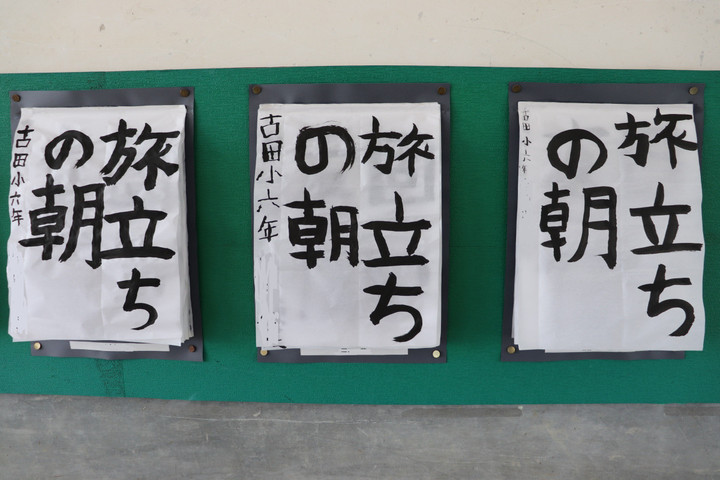 旅立ち
の朝
古田小六年
旅立ち
の朝
古田小六年
旅立ち
の朝
古田小六年